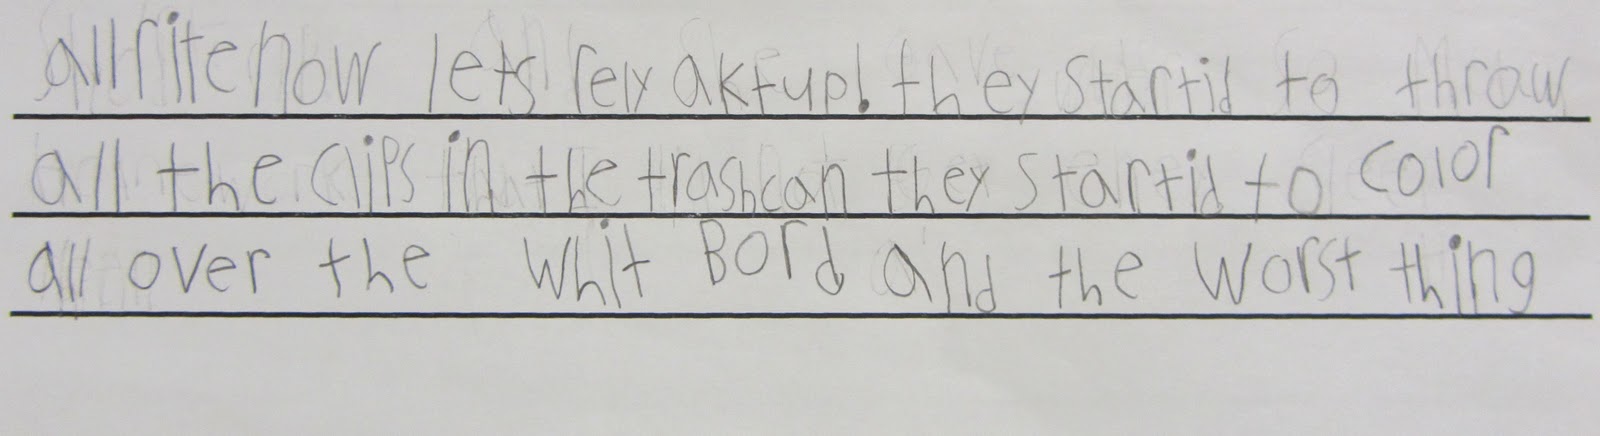 all rite now lets rely aktup! they startid to throw
all the clips in the trashcan they startid to color
all over the whit Bord and the worst thing